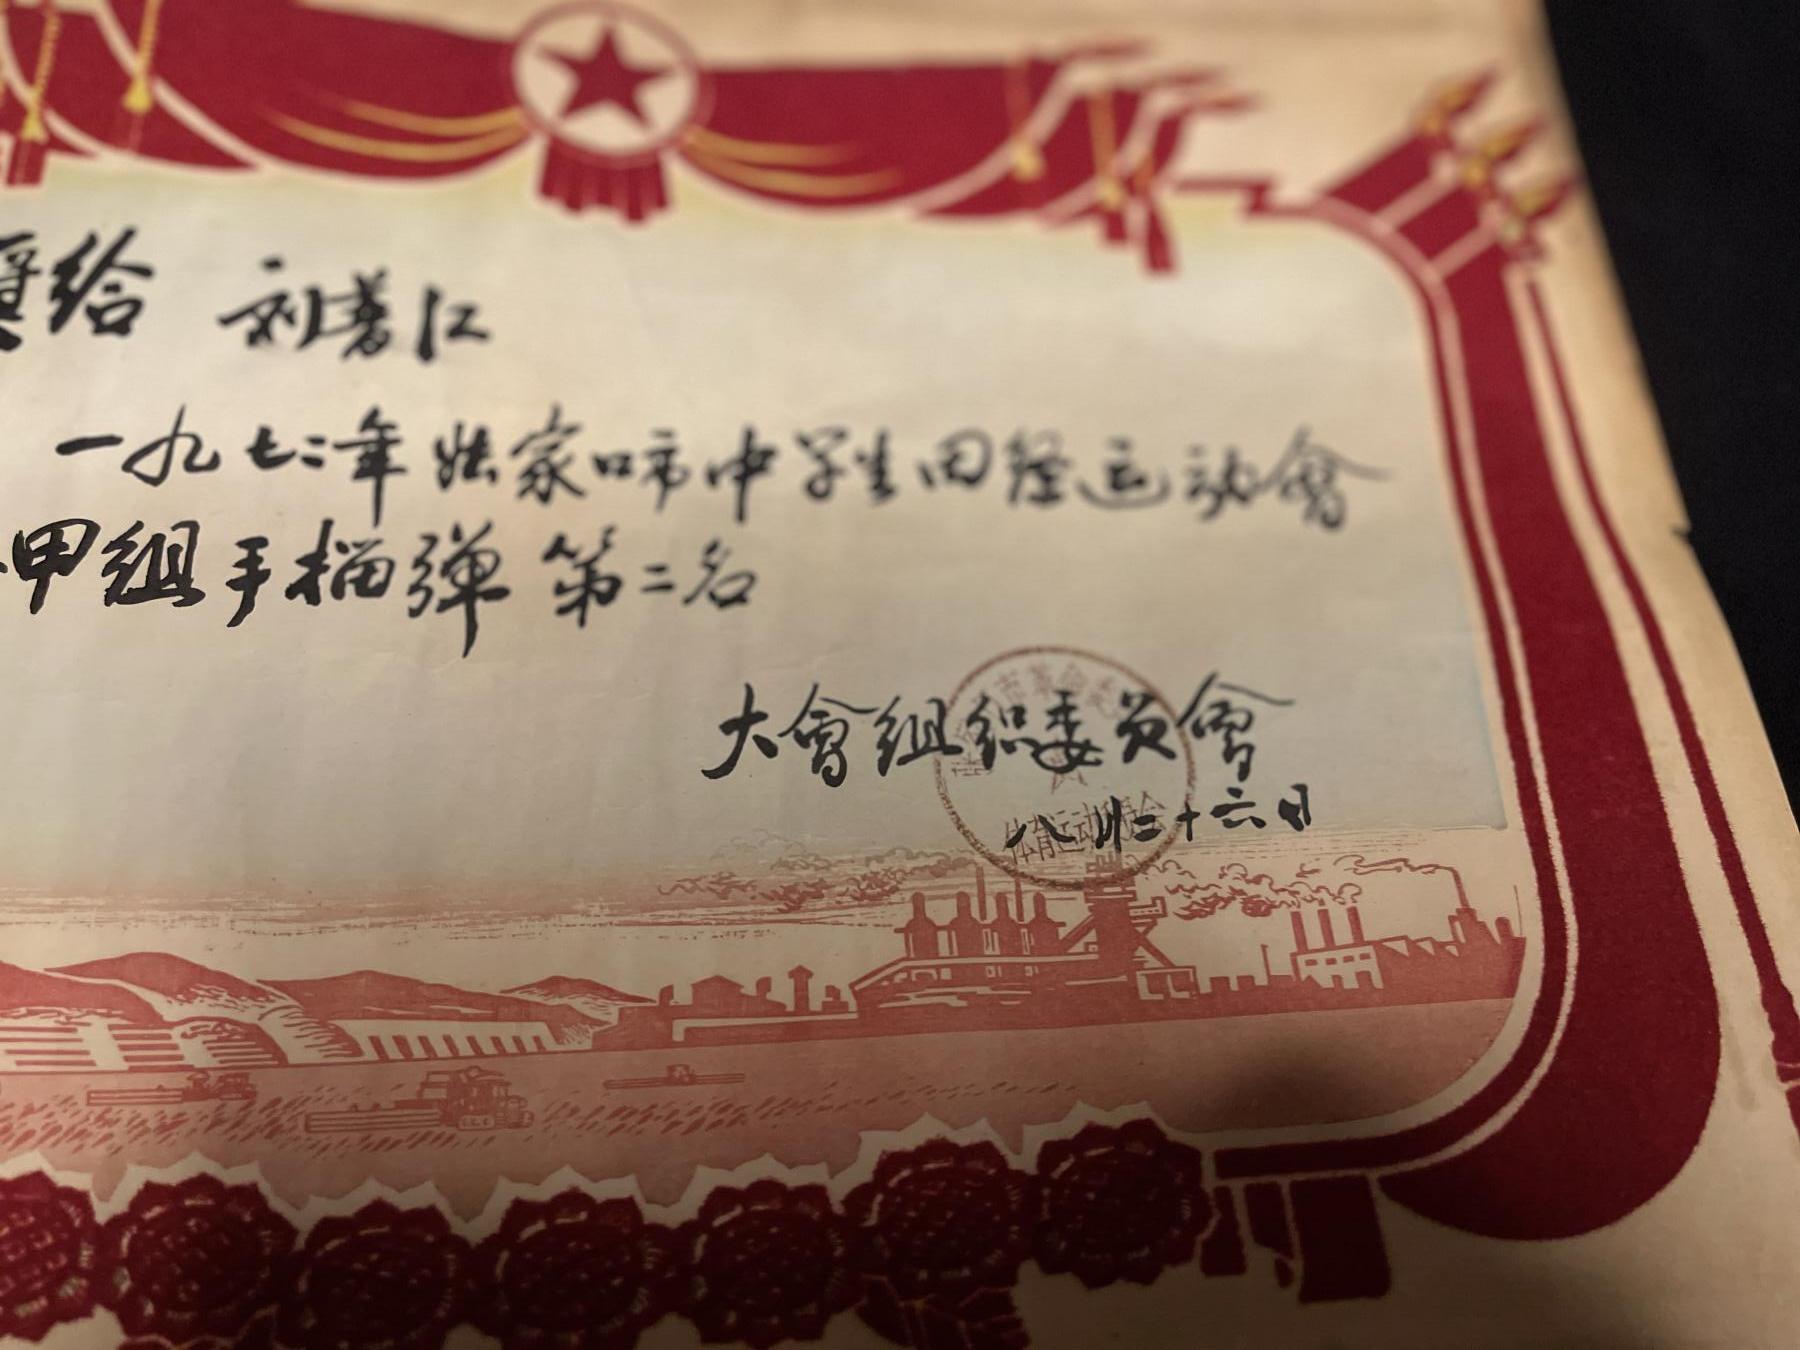 奖给 刘著江
一九七二年张家口市中学生田径运动會
甲组手榴弹第二名
大會组织委员會
市革命委
体育运动委员会
八月二十六日